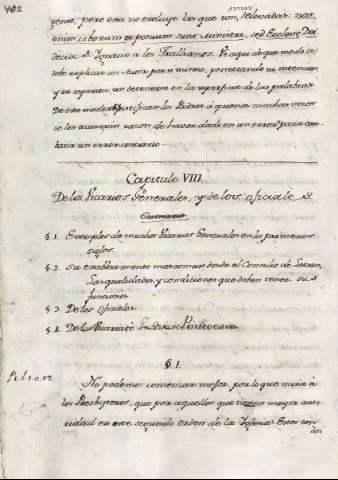 402
mas
gente, pero esa no excluye las que son elevadas: non
enim ciborum et potuum sunt Ministri, sed Ecclesiæ Dei
decia S. Ignacio a los Trallianos. Ve aqui de que modo se
debe explicar un Autor por sí mismo, penetrando su intencion
y su espiritu, sin detenerse en la superficie de las palabras
De este modo se justifican los Padres à quienes muchas veces
se les acusa sin razon de haver dado en un error para com-
batir un error contrario.
Capitulo VIII
De los Vicarios Generales, y de los oficiales
Sumario
§ 1. Exemplos de muchos Vicarios Generales en los primeros
siglos.
§ 2. Su establecimiento mas comun desde el Concilio de Letran,
las qualidades y condiciones que deben tener sus
funciones
§ 3. De los Oficiales.
§ 4. De los Vicarios
§ 1.
No podemos comenzar mejor por lo que mira à
los Presbyteros, que por aquellos que tienen mayor auto-
ridad en este segundo orden de la Iglesia. Estos son
los